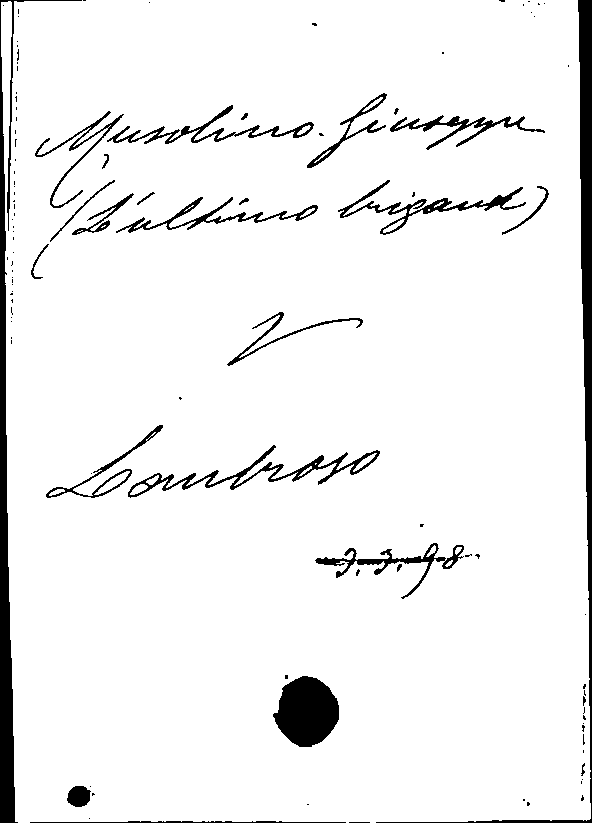 Musolino. Giuseppe
(L'ultimo brigant)
V
Lombroso
9.3.98